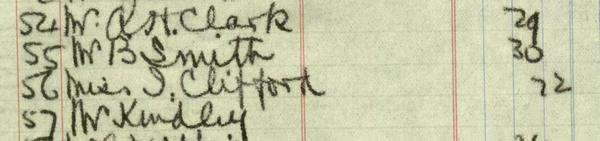 54 Mr. A H. Clark 29
55 Mr B Smith 30
56 Miss I. Clifford 22
57 Mr. Kindley